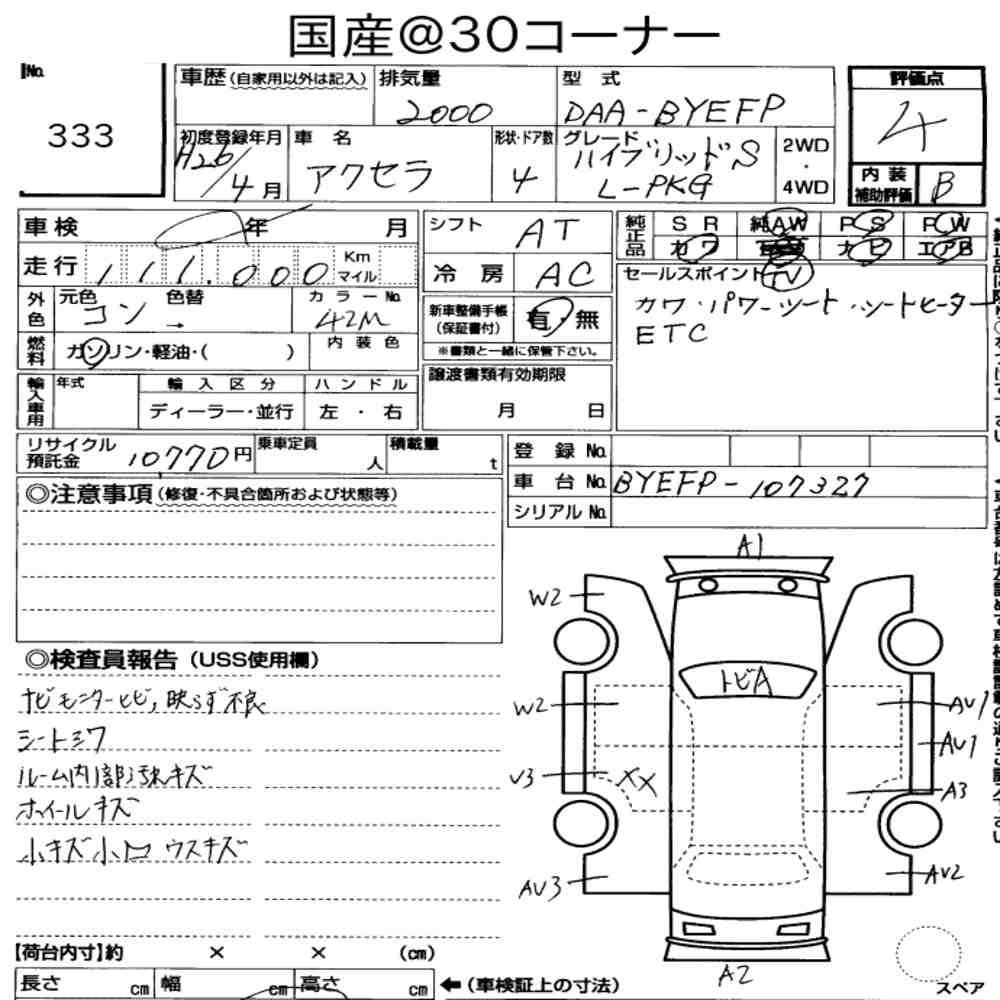 国産@30コーナー
No.
333
車歴(自家用以外は記入)
排気量
2000
型 式
DAA-BYEFP
評価点
4
初度登録年月
H26/4月
車 名
アクセラ
形状・ドア数
4
グレード
ハイブリッドS
L-PKG
2WD
・
4WD
内 装
補助評価
B
車検
年
月
シフト
AT
純正品
SR
純AW
PS
PW
カワ
ナビ
エアB
走行
111,000
Km
マイル
冷 房
AC
セールスポイント
TV
カワ・パワーシート・シートヒーター
ETC
外色
元色
コン
色替
カラーNo.
42M
新車整備手帳
(保証書付)
有・無
※書類と一緒に保管下さい。
燃料
ガソリン・軽油・( )
内装色
輸入車用
年式
輸入区分
ディーラー・並行
ハンドル
左・右
譲渡書類有効期限
月 日
リサイクル
預託金
10770円
乗車定員
人
積載量
t
登 録 No.
車 台 No.
BYEFP-107327
シリアル No.
◎注意事項(修復・不具合箇所および状態等)
◎検査員報告(USS使用欄)
ナビモニターヒビ,映らず不良
シートシワ
ルーム内1部汚れキズ
ホイールキズ
小キズ小凹 ウスキズ
A1
W2
トビA
W2
AV1
AV1
V3
XX
A3
AV3
AV2
A2
スペア
【荷台内寸】約 × × (cm)
長さ cm
幅 cm
高さ cm
←(車検証上の寸法)